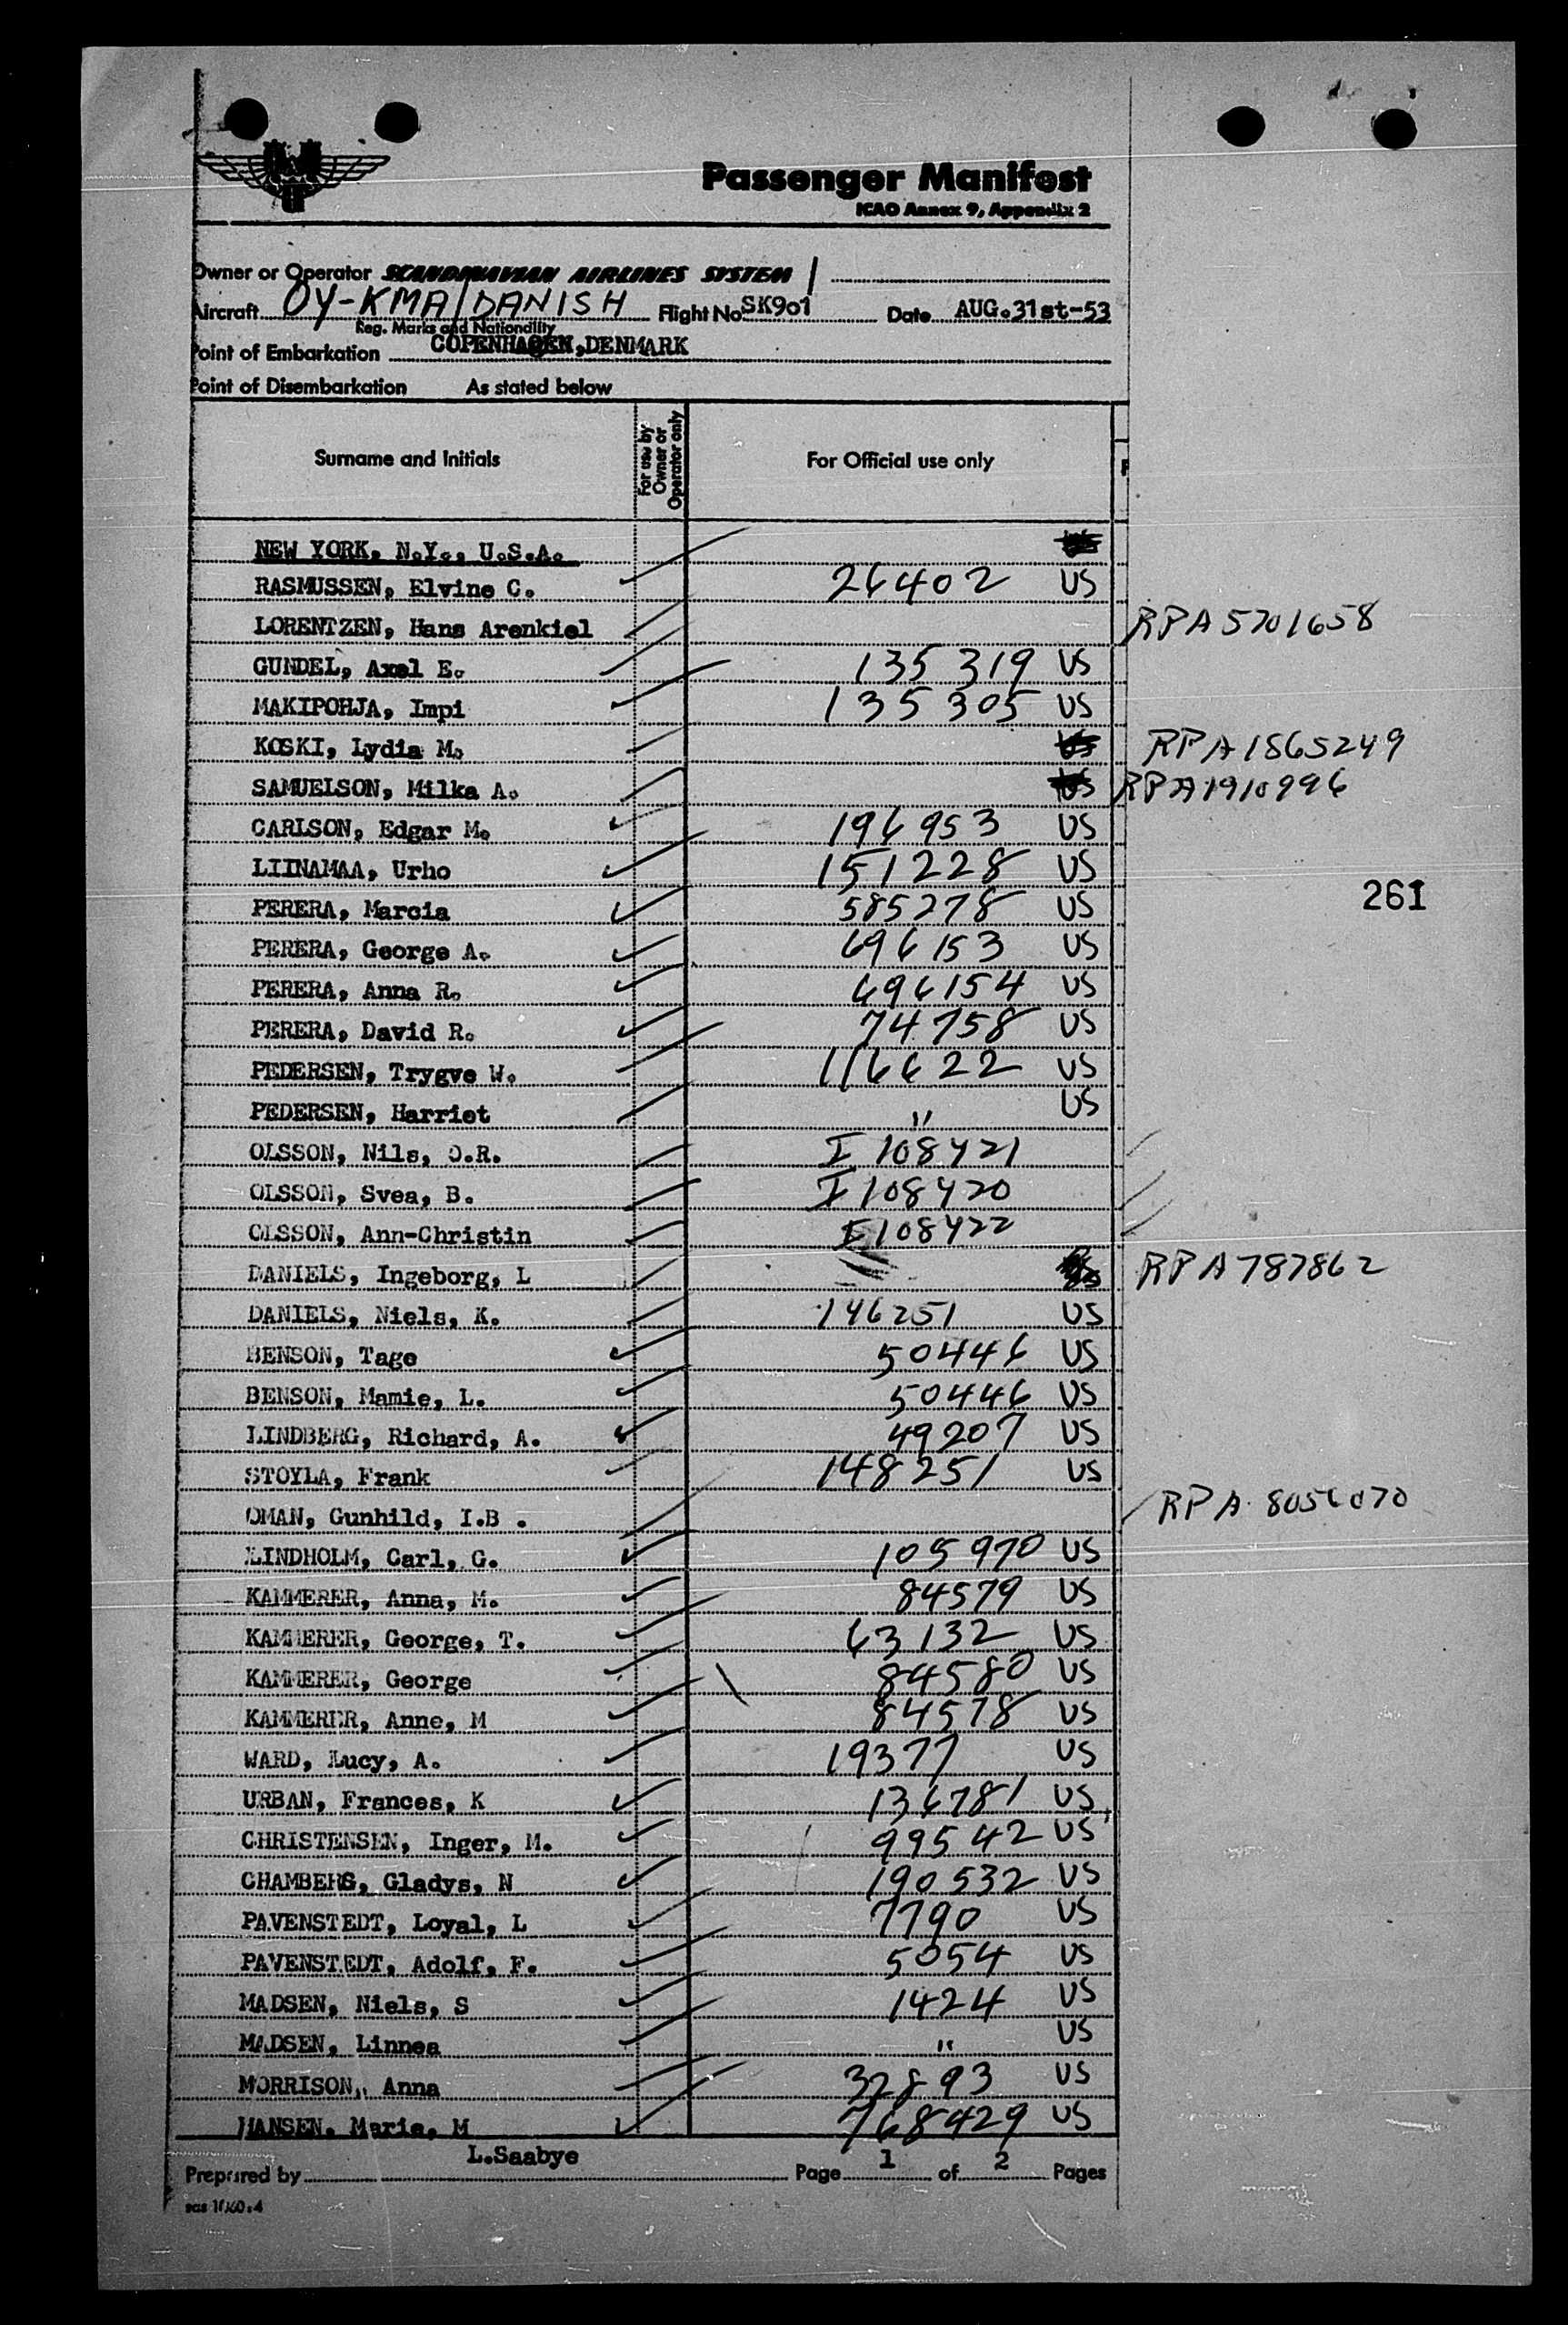 Passenger Manifest
ICAO Annex 9, Appendix 2
Owner or Operator SCANDINAVIAN AIRLINES SYSTEM
Aircraft OY-KMA/DANISH Flight No SK901 Date AUG.31st-53
Reg. Marks and Nationality
Point of Embarkation COPENHAGEN,DENMARK
Point of Disembarkation As stated below
Surname and Initials For use by Owner or Operator only For Official use only
NEW YORK, N.Y., U.S.A.
RASMUSSEN, Elvine C. 26402 US
LORENTZEN, Hans Arenkiel RPA 5701658
GUNDEL, Axel E. 135 319 US
MAKIPOHJA, Impi 135 305 US
KOSKI, Lydia M. US RPA 1865249
SAMUELSON, Milka A. US RPA 1910996
CARLSON, Edgar M. 196953 US
LIINAMAA, Urho 151228 US
PERERA, Marcia 585278 US
261
PERERA, George A. 696153 US
PERERA, Anna R. 696154 US
PERERA, David R. 74758 US
PEDERSEN, Trygve W. 116622 US
PEDERSEN, Harriet " US
OLSSON, Nils, O.R. I 108421
OLSSON, Svea, B. I 108420
OLSSON, Ann-Christin I 108422
DANIELS, Ingeborg, L RPA 787862
DANIELS, Niels, K. 146251 US
BENSON, Tage 50446 US
BENSON, Mamie, L. 50446 US
LINDBERG, Richard, A. 49207 US
STOYLA, Frank 148251 US
OMAN, Gunhild, I.B . RPA 8056070
LINDHOLM, Carl, G. 105970 US
KAMMERER, Anna, M. 84579 US
KAMMERER, George, T. 63132 US
KAMMERER, George 84580 US
KAMMERER, Anne, M 84578 US
WARD, Lucy, A. 19377 US
URBAN, Frances, K 136781 US
CHRISTENSEN, Inger, M. 99542 US
CHAMBERS, Gladys, N 190532 US
PAVENSTEDT, Loyal, L 7790 US
PAVENSTEDT, Adolf, F. 5054 US
MADSEN, Niels, S 1424 US
MADSEN, Linnea " US
MORRISON, Anna 32893 US
HANSEN, Marie, M 768429 US
Prepared by L.Saabye Page 1 of 2 Pages